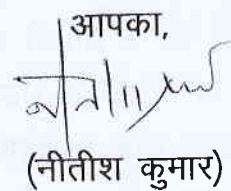 आपका,
(नीतीश कुमार)